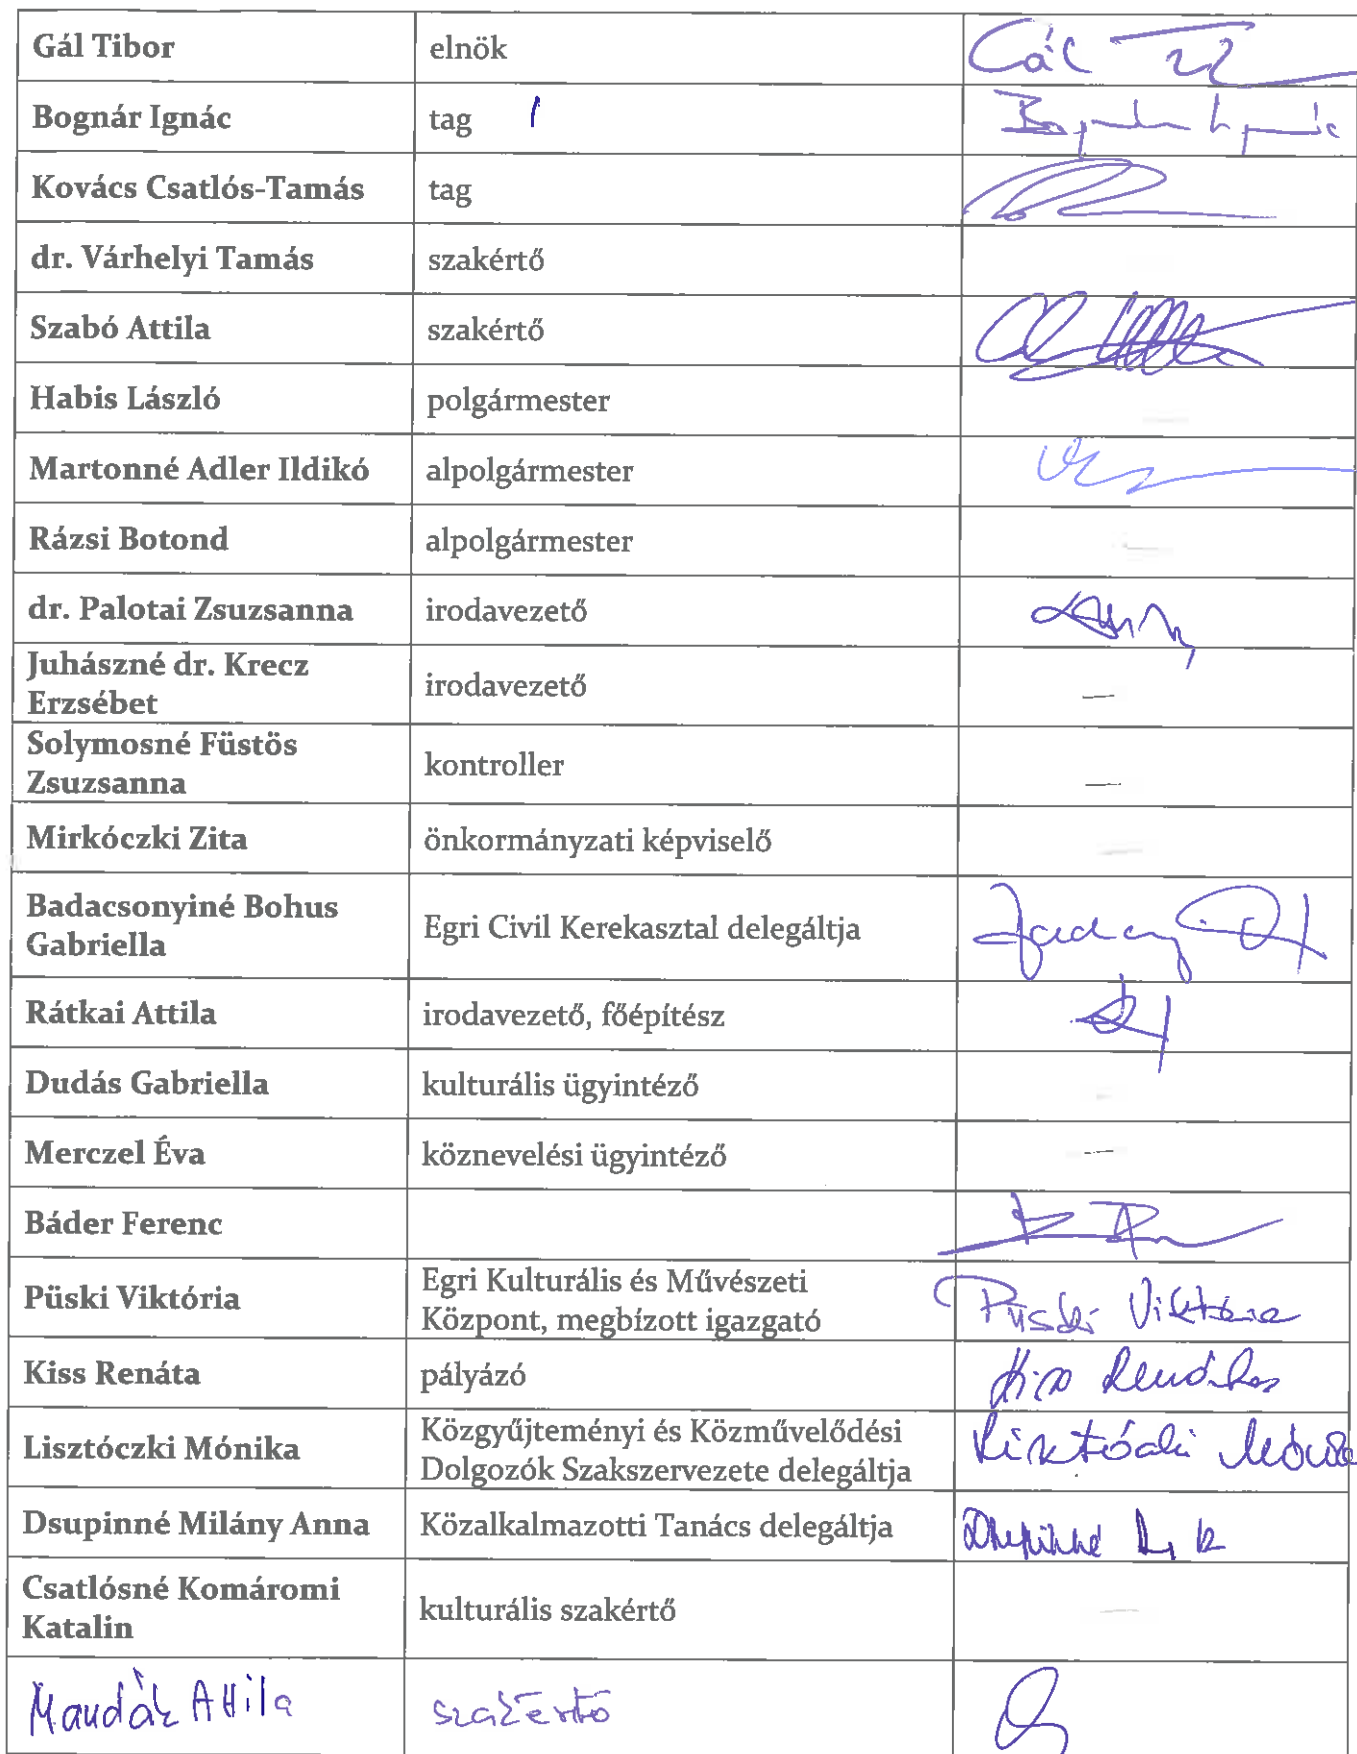 Gál Tibor elnök Gál
Bognár Ignác tag Bognár Ignác
Kovács Csatlós-Tamás tag
dr. Várhelyi Tamás szakértő
Szabó Attila szakértő
Habis László polgármester
Martonné Adler Ildikó alpolgármester
Rázsi Botond alpolgármester
dr. Palotai Zsuzsanna irodavezető
Juhászné dr. Krecz
Erzsébet
irodavezető
Solymosné Füstös
Zsuzsanna
kontroller
Mirkóczki Zita önkormányzati képviselő
Badacsonyiné Bohus
Gabriella
Egri Civil Kerekasztal delegáltja
Rátkai Attila irodavezető, főépítész
Dudás Gabriella kulturális ügyintéző
Merczel Éva köznevelési ügyintéző
Báder Ferenc
Püski Viktória
Egri Kulturális és Művészeti
Központ, megbízott igazgató
Püski Viktória
Kiss Renáta pályázó Kiss Renáta
Lisztóczki Mónika
Közgyűjteményi és Közművelődési
Dolgozók Szakszervezete delegáltja
Lisztóczki Mónika
Dsupinné Milány Anna Közalkalmazotti Tanács delegáltja Dsupinné
Csatlósné Komáromi
Katalin
kulturális szakértő
Mandák Attila szakértő